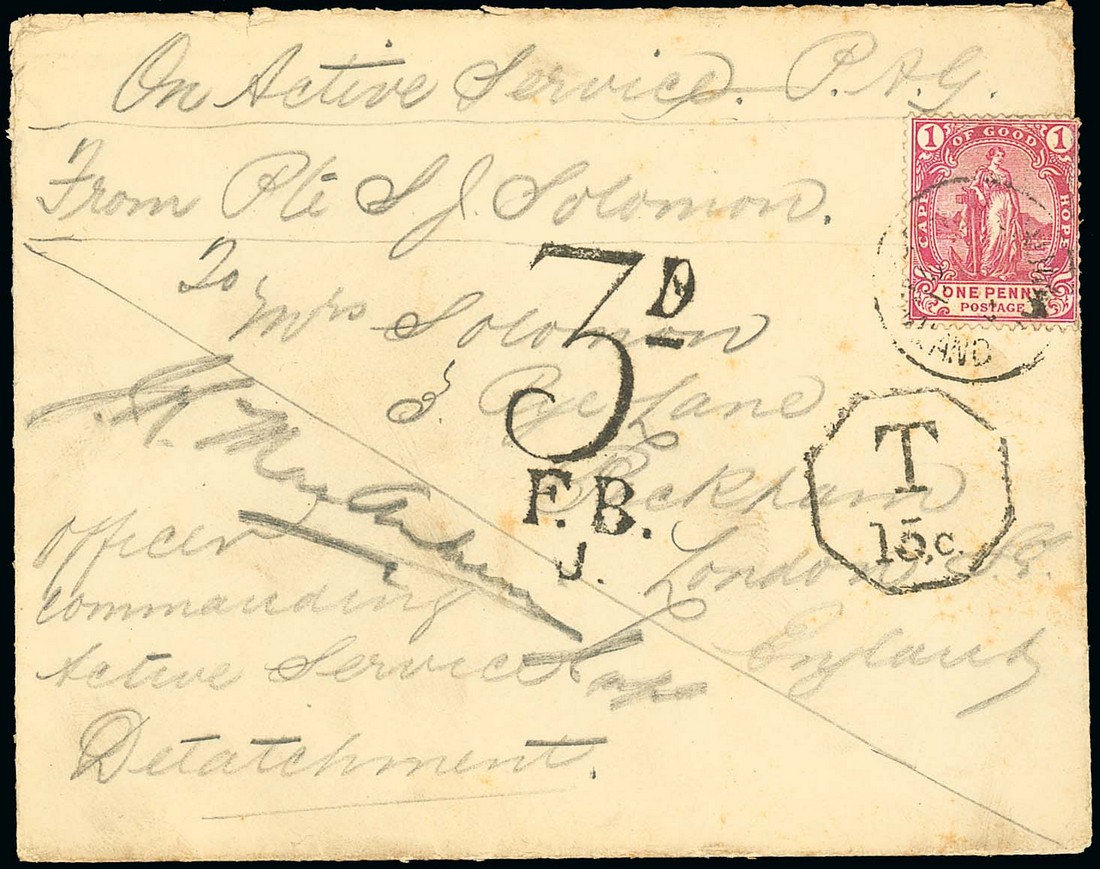 On Active Service. P.A.G.
From Pte S. J. Solomon.
1 OF GOOD 1
CAPE HOPE
ONE PENNY
POSTAGE
To
Mrs Solomon
Rye Lane
Peckham
London S.E.
England
3D
F.B.
J.
T
15.c.
officer
commanding
Active Service
Detatchment.